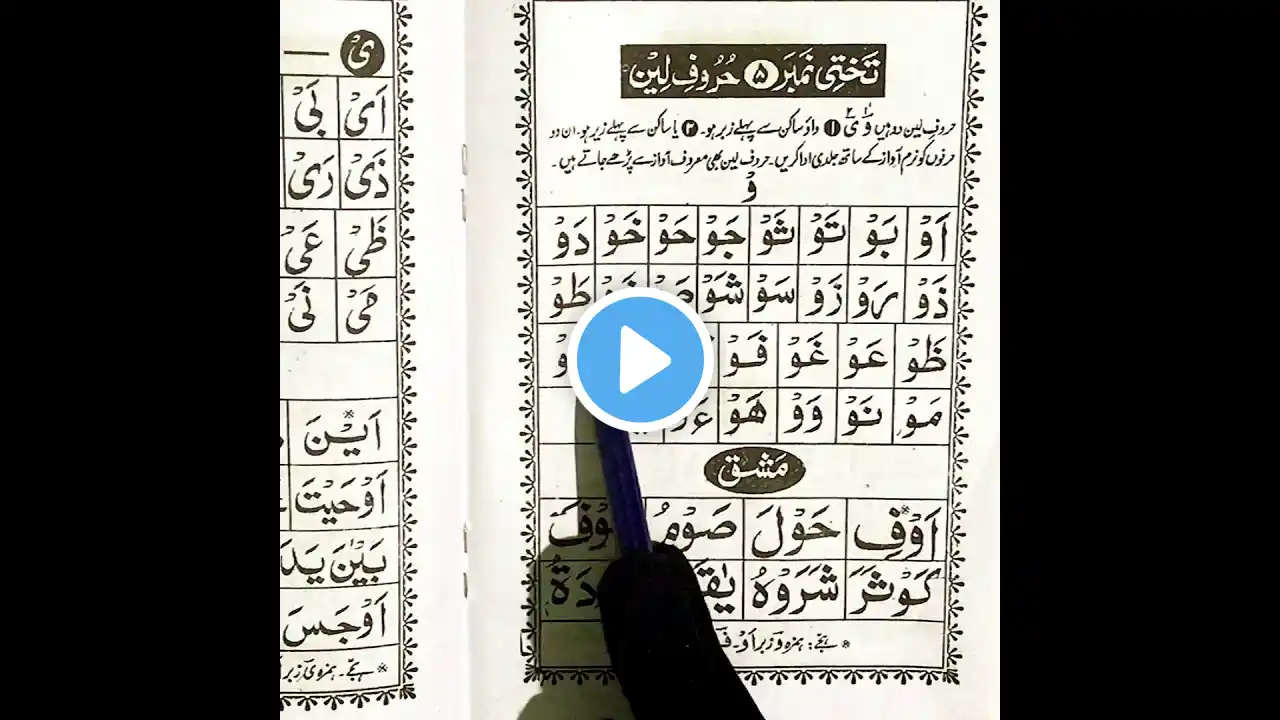 تَختِی نَمبَر ۵ حُرُوفِ لِیْن
حروفِ لین دو ہیں وْ یْ ۱ واؤ ساکن سے پہلے زبر ہو۔ ۲ یا ساکن سے پہلے زبر ہو۔ ان دو
حرفوں کو نرم آواز کے ساتھ جلدی ادا کریں۔ حروف لین بھی معروف آواز سے پڑھے جاتے ہیں۔
وْ
اَوْ بَوْ تَوْ ثَوْ جَوْ حَوْ خَوْ دَوْ
ذَوْ رَوْ زَوْ سَوْ شَوْ طَوْ
ظَوْ عَوْ غَوْ فَوْ
مَوْ نَوْ وَوْ هَوْ
مَشق
اَوْفِ حَوْلَ صَوْمُ
كَوْثَرَ شَرَوْهُ
* ہجّے: ہمزہ و زبر اَوْ۔
یْ
اَیْ بَیْ
ذَیْ رَیْ
ظَیْ عَیْ
مَیْ نَیْ
اَيْنَ
اَوْحَيْتَ
بَيْنَ
اَوْجَسَ
* ہجّے۔ ہمزہ ی زبر